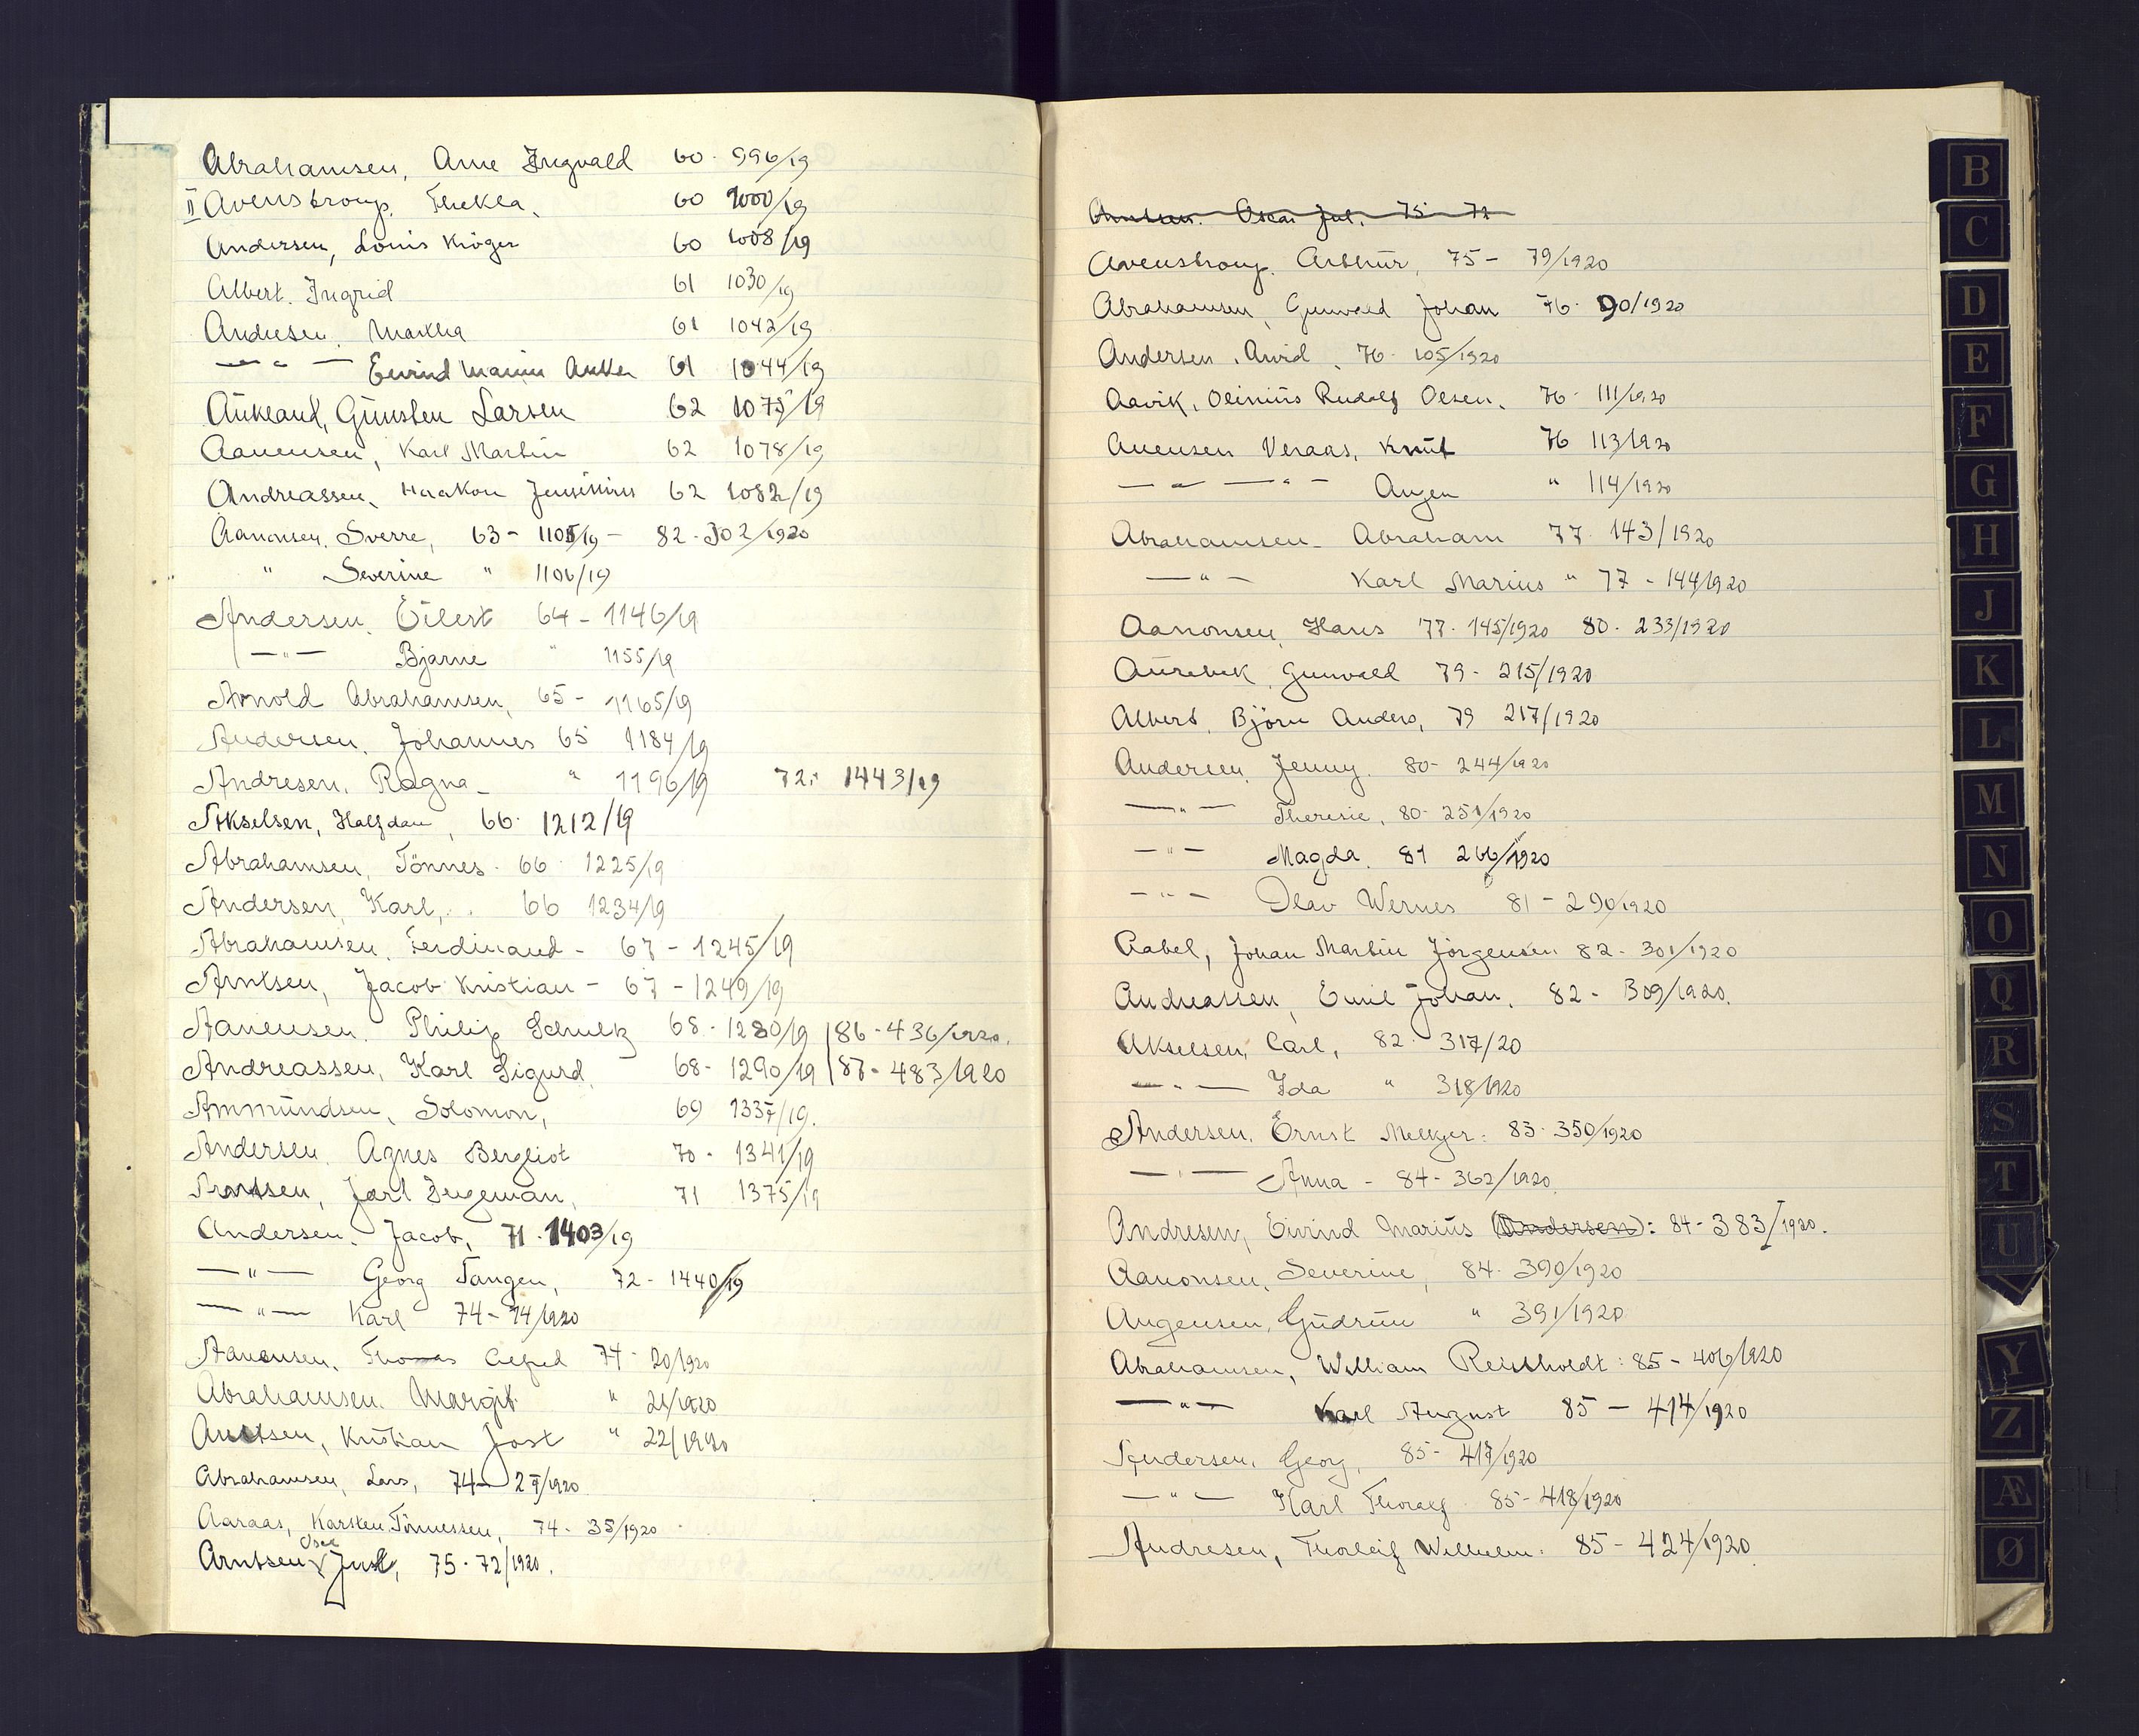 Abrahamsen, Arne Ingvald 60 - 996/19
II Avenstroup, Thekla, 60 1000/19
Andersen, Louis Kröger 60 1008/19
Albert. Ingrid 61 1030/19
Andresen. Martha 61 1042/19
— " — Eivind Marius Anker 61 1044/19
Aukland, Gunsten Larsen 62 1075/19
Aanensen, Karl Martin 62 1078/19
Andreassen, Haakon 62 1082/19
Aanonsen, Sverre, 63 - 1105/19 - 82 - 302/1920
" Severine " 1106/19
Andersen, Eilert 64 - 1146/19
— " — Bjarne " 1155/19
Arnold Abrahamsen, 65 - 1165/19
Andersen, Johannes 65 1184/19
Andresen, Ragna - " 1196/19 72 - 1443/19
Akselsen, Halfdan, 66 - 1212/19
Abrahamsen, Tönnes - 66 - 1225/19
Andersen, Karl, 66 1234/19
Abrahamsen, Ferdinand - 67 - 1245/19
Arntsen, Jacob Kristian - 67 - 1249/19
Aanensen, Philip Schultz 68 - 1280/19 | 86 - 436/1920.
Andreassen, Karl Sigurd, 68 - 1290/19 | 87 - 483/1920
Ammundsen, Solomon, 69 1337/19.
Andersen, Agnes Bergliot 70 - 1341/19
Arntsen, Jarl 71 1375/19
Andersen, Jacob, 71 - 1403/19
— " — Georg Tangen, 72 - 1440/19
— " — Karl 74 - 14/1920
Aanensen, Thomas Alfred 74 - 20/1920
Abrahamsen. Margit " 21/1920
Arntsen, Kristian Jost " 22/1920
Abrahamsen, Lars, 74 - 27/1920
Aaraas, Karsten Tönnessen, 74 - 35/1920
Arntsen, Oscar Jul, 75 - 72/1920.
Arntsen. Oscar Jul. 75 - 72
Avenstroup. Arthur, 75 - 79/1920
Abrahamsen, Gunvald Johan 76 - 90/1920
Andersen, Arvid, 76 - 105/1920
Aavik, Olinius Rudolf Olsen, 76 - 111/1920
Anensen Veraas, Knut 76 113/1920
— " — " — Angen " 114/1920
Abrahamsen - Abraham 77 - 143/1920
— " — Karl Marius " 77 - 144/1920
Aanonsen, Hans 77 - 145/1920 80 - 233/1920
Aurebek, Gunvald 79 - 215/1920
Albert, Björn Anders, 79 217/1920
Andersen, Jenny, 80 - 244/1920
— " — Theresie, 80 - 251/1920
— " — Magda, 81 266/1920
— " — Olav Wernes 81 - 290/1920
Aabel, Johan Martin Jörgensen 82 - 301/1920
Andreassen, Emil Johan, 82 - 309/1920.
Akselsen, Carl, 82 - 317/20
— " — Ida " 318/1920
Andersen, Ernst Melkjer: 83 - 350/1920
— " — Anna - 84 - 362/1920
Andresen, Eivind Marius (Andersen): 84 - 383 I/1920.
Aanonsen, Severine, 84 - 390/1920
Angensen, Gudrun " 391/1920
Abrahamsen, William Reistholdt: 85 - 406/1920
— " — Karl August 85 - 414/1920
Andersen, Georg, 85 - 417/1920
— " — Karl Thoralf 85 - 418/1920
Andresen, Thorleif Wilhelm: 85 - 424/1920
B
C
D
E
F
G
H
J
K
L
M
N
O
Q
R
S
T
U
Y
Z
Æ
Ø